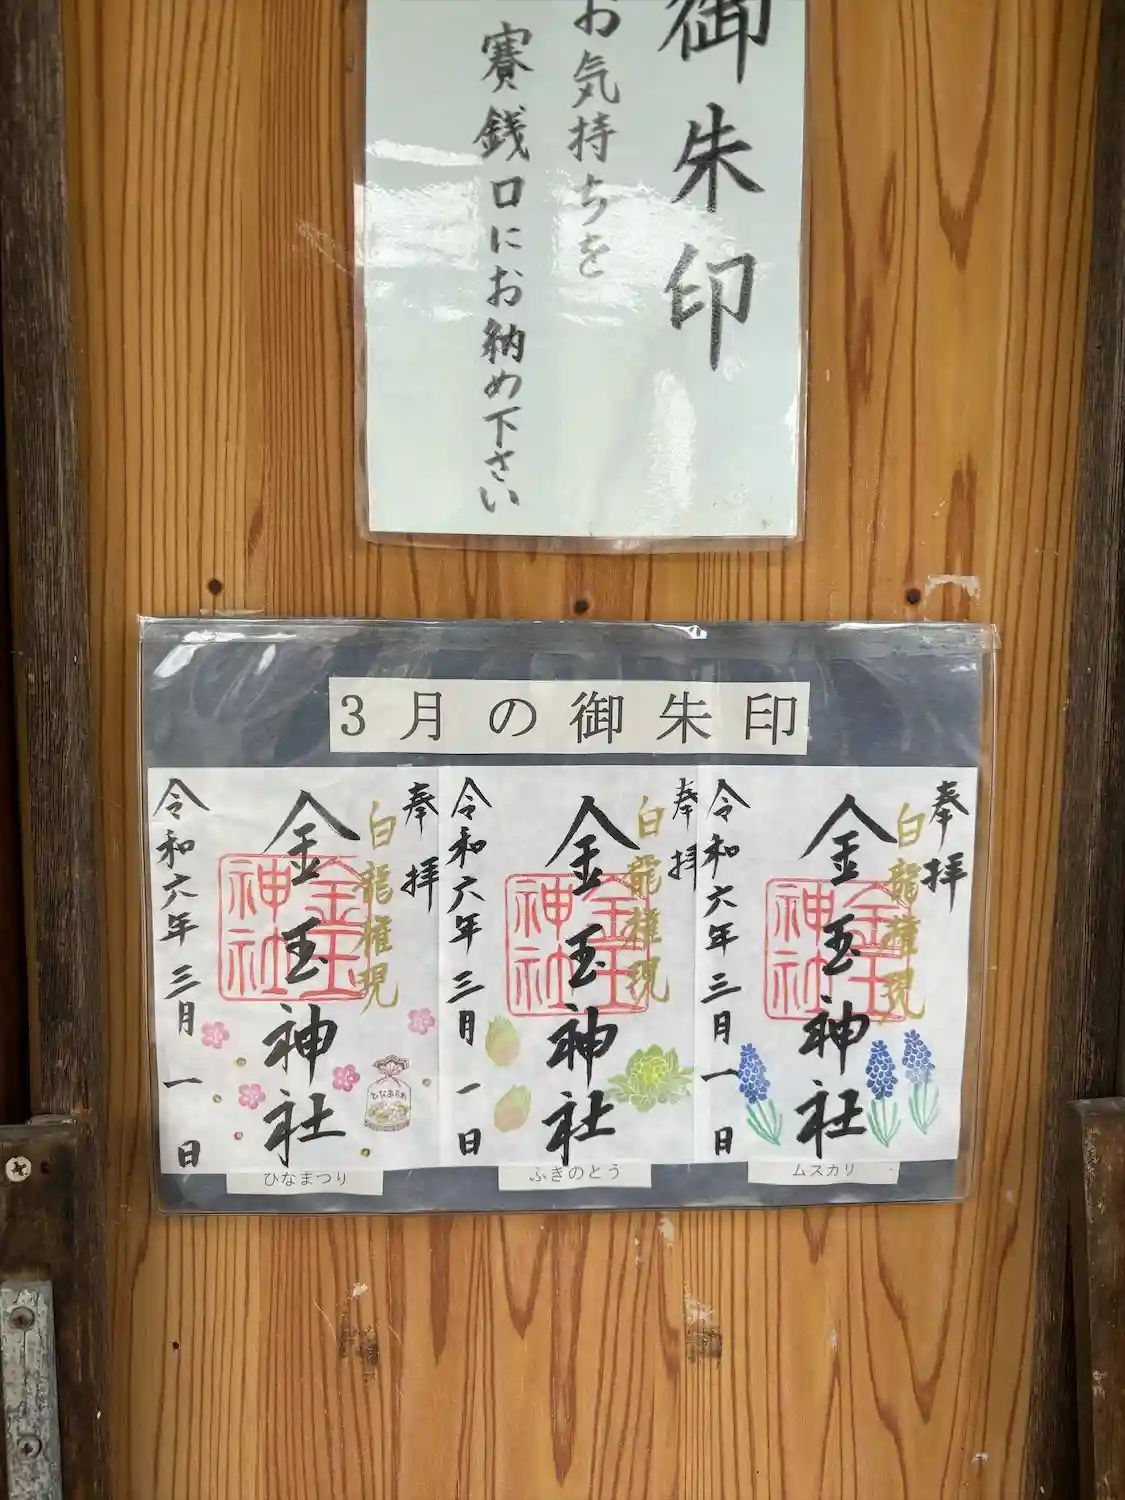 御朱印
お気持ちを
賽銭口にお納め下さい
3月の御朱印
奉拝
白龍権現
金玉神社
金玉神社
令和六年三月一日
ひなあられ
ひなまつり
奉拝
白龍権現
金玉神社
金玉神社
令和六年三月一日
ふきのとう
奉拝
白龍権現
金玉神社
金玉神社
令和六年三月一日
ムスカリ